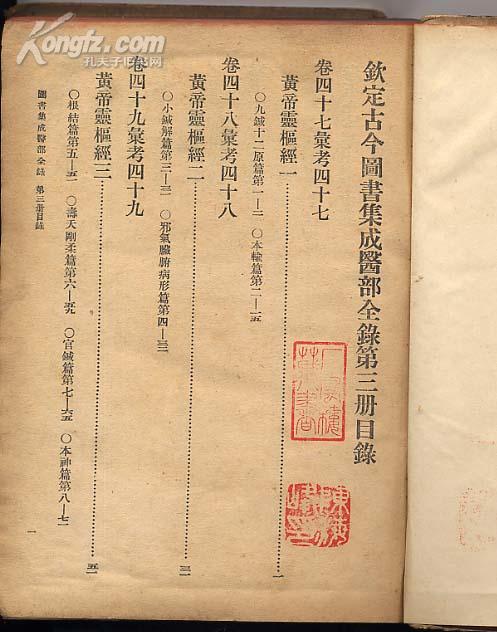 欽定古今圖書集成醫部全錄第三册目錄
卷四十七彙考四十七
黃帝靈樞經一……一
〇九鍼十二原篇第一—二 〇本輸篇第二—一五
卷四十八彙考四十八
黃帝靈樞經二……三一
〇小鍼解篇第三—三一 〇邪氣臟腑病形篇第四—三三
卷四十九彙考四十九
黃帝靈樞經三……五一
〇根結篇第五—五一 〇壽夭剛柔篇第六—五九 〇官鍼篇第七—六五 〇本神篇第八—七二
圖書集成醫部全錄 第三册目錄
一
Kongfz.com
孔夫子旧书网